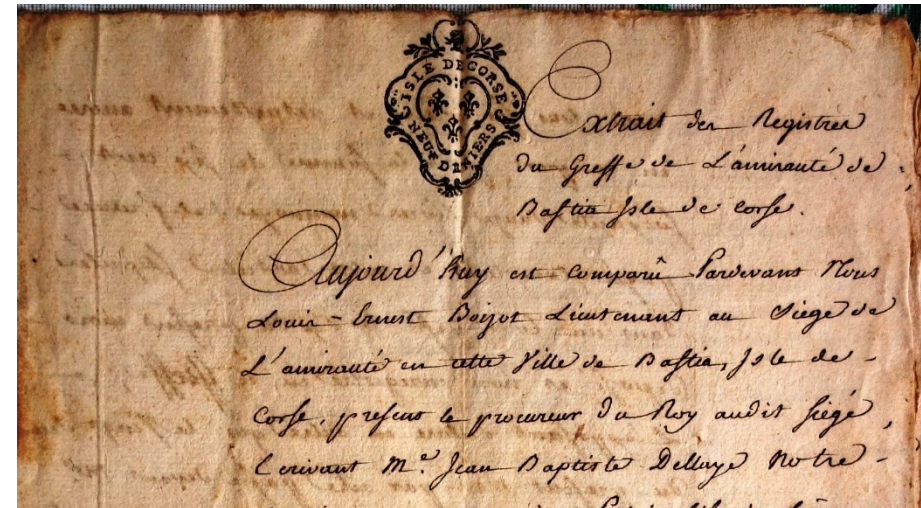 ISLE DE CORSE
NEUF DENIERS
Extrait des Registres
du Greffe de L'amirauté de
Bastia Isle de Corse.
Aujourd'huy est comparû Pardevant Nous
Louis-Ernest Boizot Lieutenant au Siege de
L'amirauté en cette Ville de Bastia, Isle de
Corse, present le procureur du Roy audit siége
Ecrivant M.e Jean Baptiste Dellaye Notre